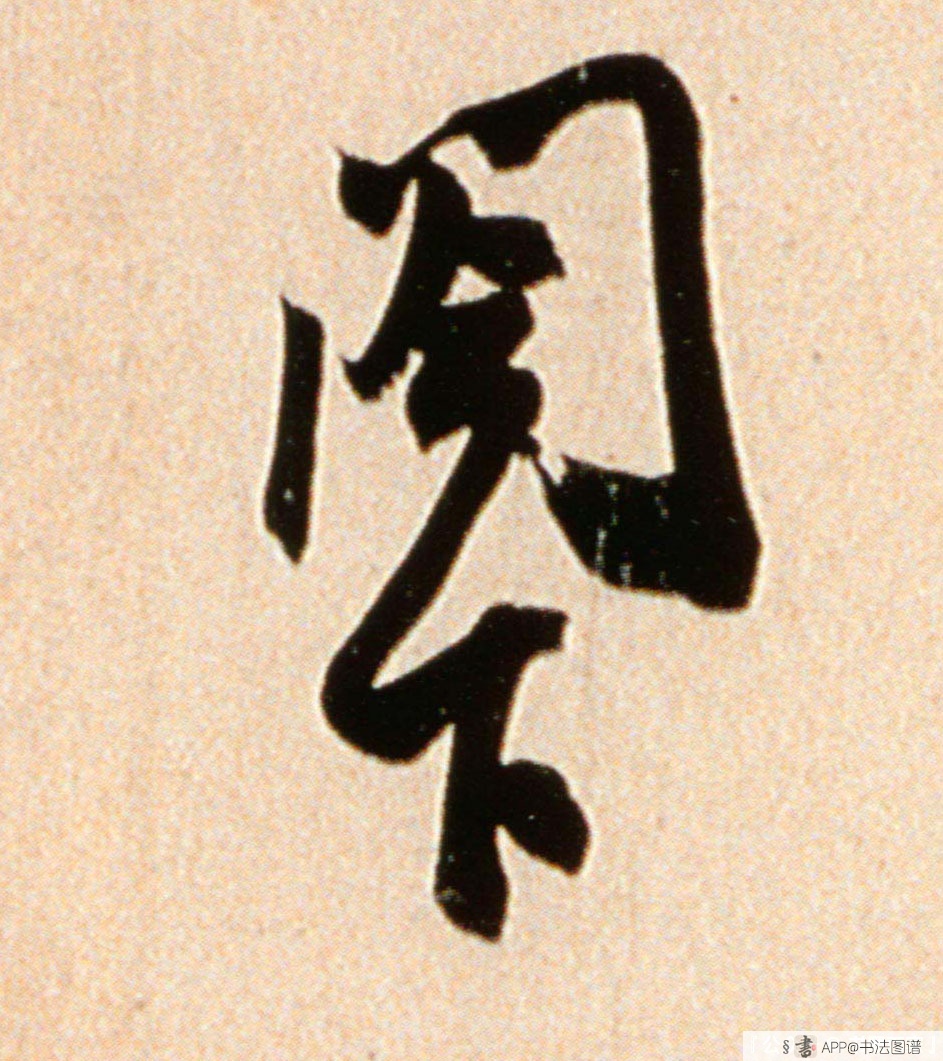 閣下
§書 APP@书法图谱